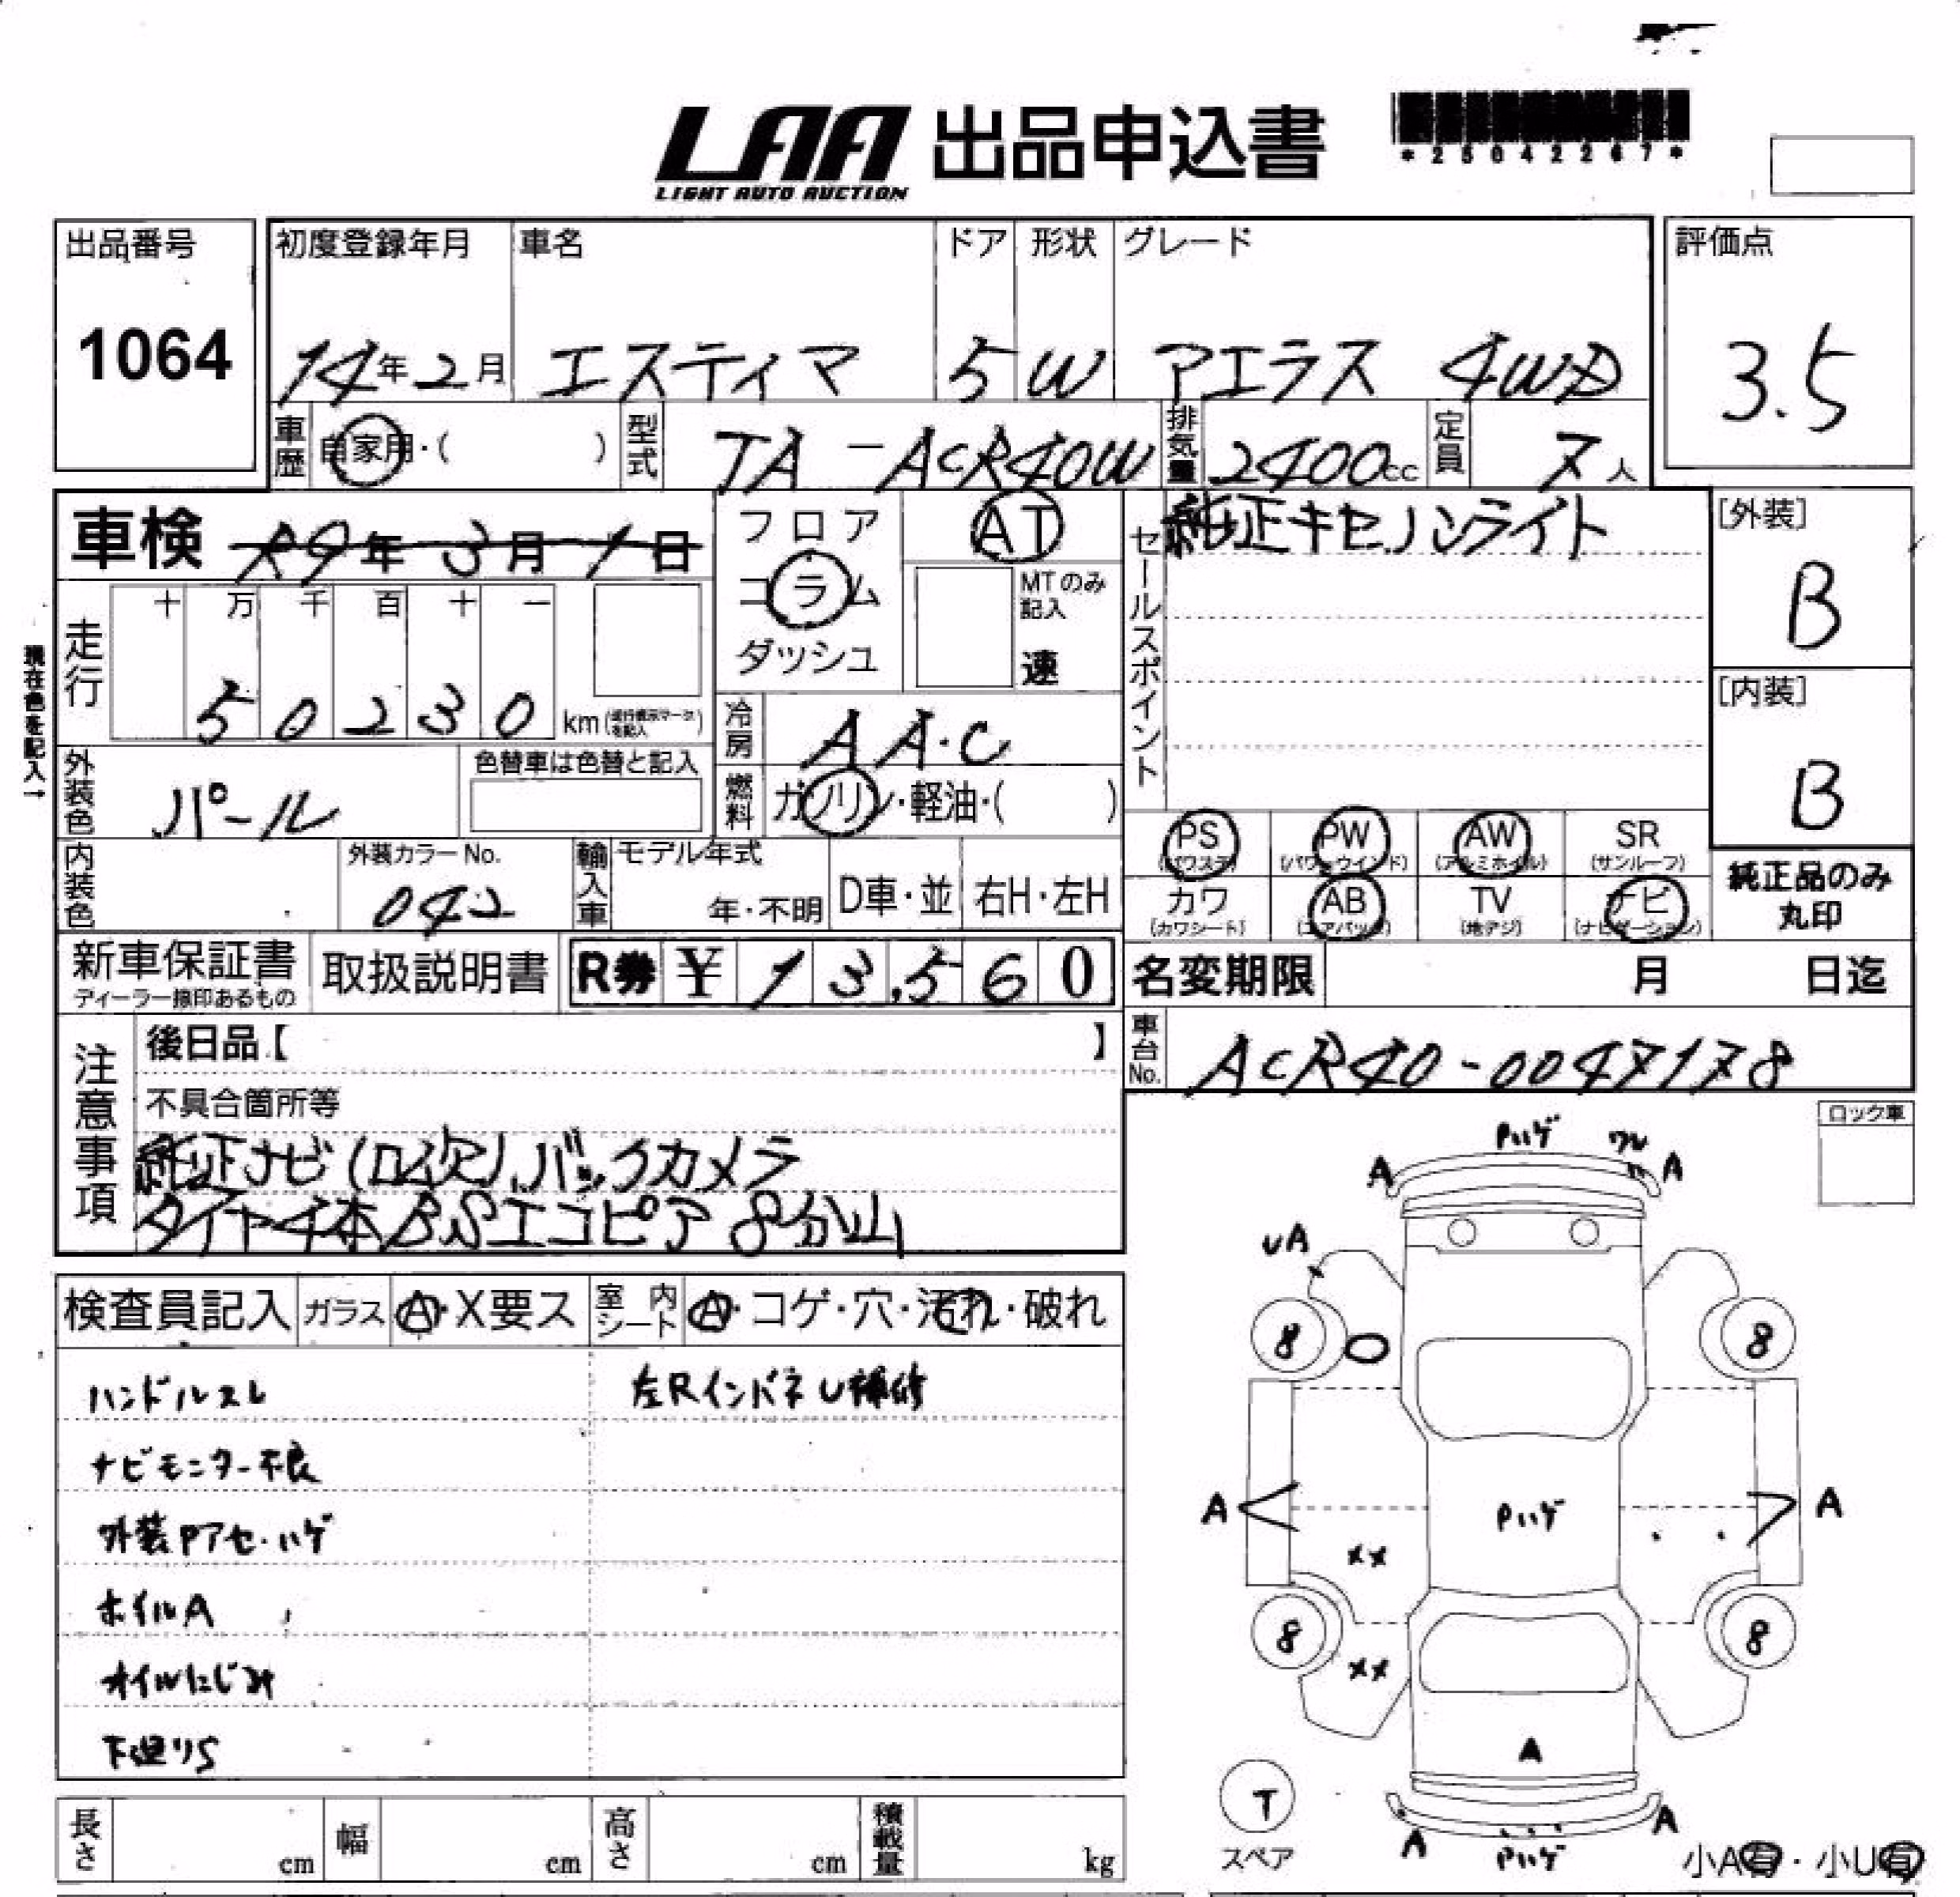 LAA 出品申込書
LIGHT AUTO AUCTION
*25042267*
出品番号 初度登録年月 車名 ドア 形状 グレード 評価点
1064 14年2月 エスティマ 5 W アエラス 4WD 3.5
車歴 自家用・( ) 型式 TA-ACR40W 排気量 2400cc 定員 7人
車検 R9年3月1日 フロア AT 純正キセノンライト [外装]
コラム MTのみ記入 B
ダッシュ 速
セールスポイント
現在色を記入↑
走行 十 万 千 百 十 一
5 0 2 3 0 km
冷房 AAC
[内装]
B
外装色 パール 色替車は色替と記入 燃料 ガソリン・軽油・( )
PS (パワステ) PW (パワーウインド) AW (アルミホイル) SR (サンルーフ)
内装色 外装カラーNo. 042 輸入車 モデル年式 年・不明 D車・並 右H・左H
カワ (カワシート) AB (エアバッグ) TV (地デジ) ナビ (ナビゲーション) 純正品のみ丸印
新車保証書 取扱説明書 R券 ¥ 13,560 名変期限 月 日迄
ディーラー捺印あるもの
注意事項 後日品【 】 車台No. ACR40-0047178
不具合箇所等
純正ナビ(ロム欠)、バックカメラ
タイヤ4本BSエコピア8分山
ロック車
検査員記入 ガラス A・X要ス 室内シート A・コゲ・穴・汚れ・破れ
ハンドルスレ 左RインパネU補修
ナビモニター不良
外装Pアセ・ハゲ
ホイルA
オイルにじみ
下廻りS
Pハゲ ワレ
A A
UA
8 8
A Pハゲ A
XX
8 8
XX
A
T
スペア
A A
Pハゲ
小A有・小U有
長さ cm 幅 cm 高さ cm 積載量 kg